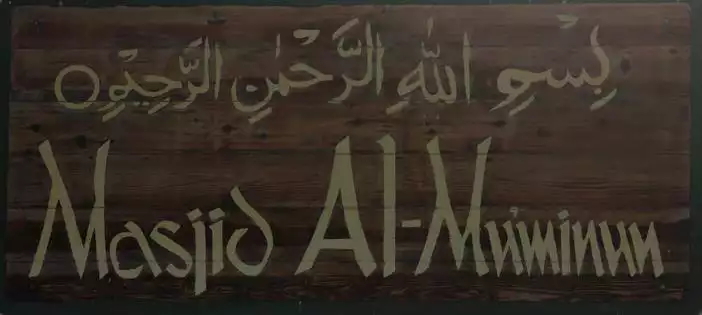 بِسْمِ اللّٰهِ الرَّحْمٰنِ الرَّحِيْمِ
Masjid Al-Mu'minun